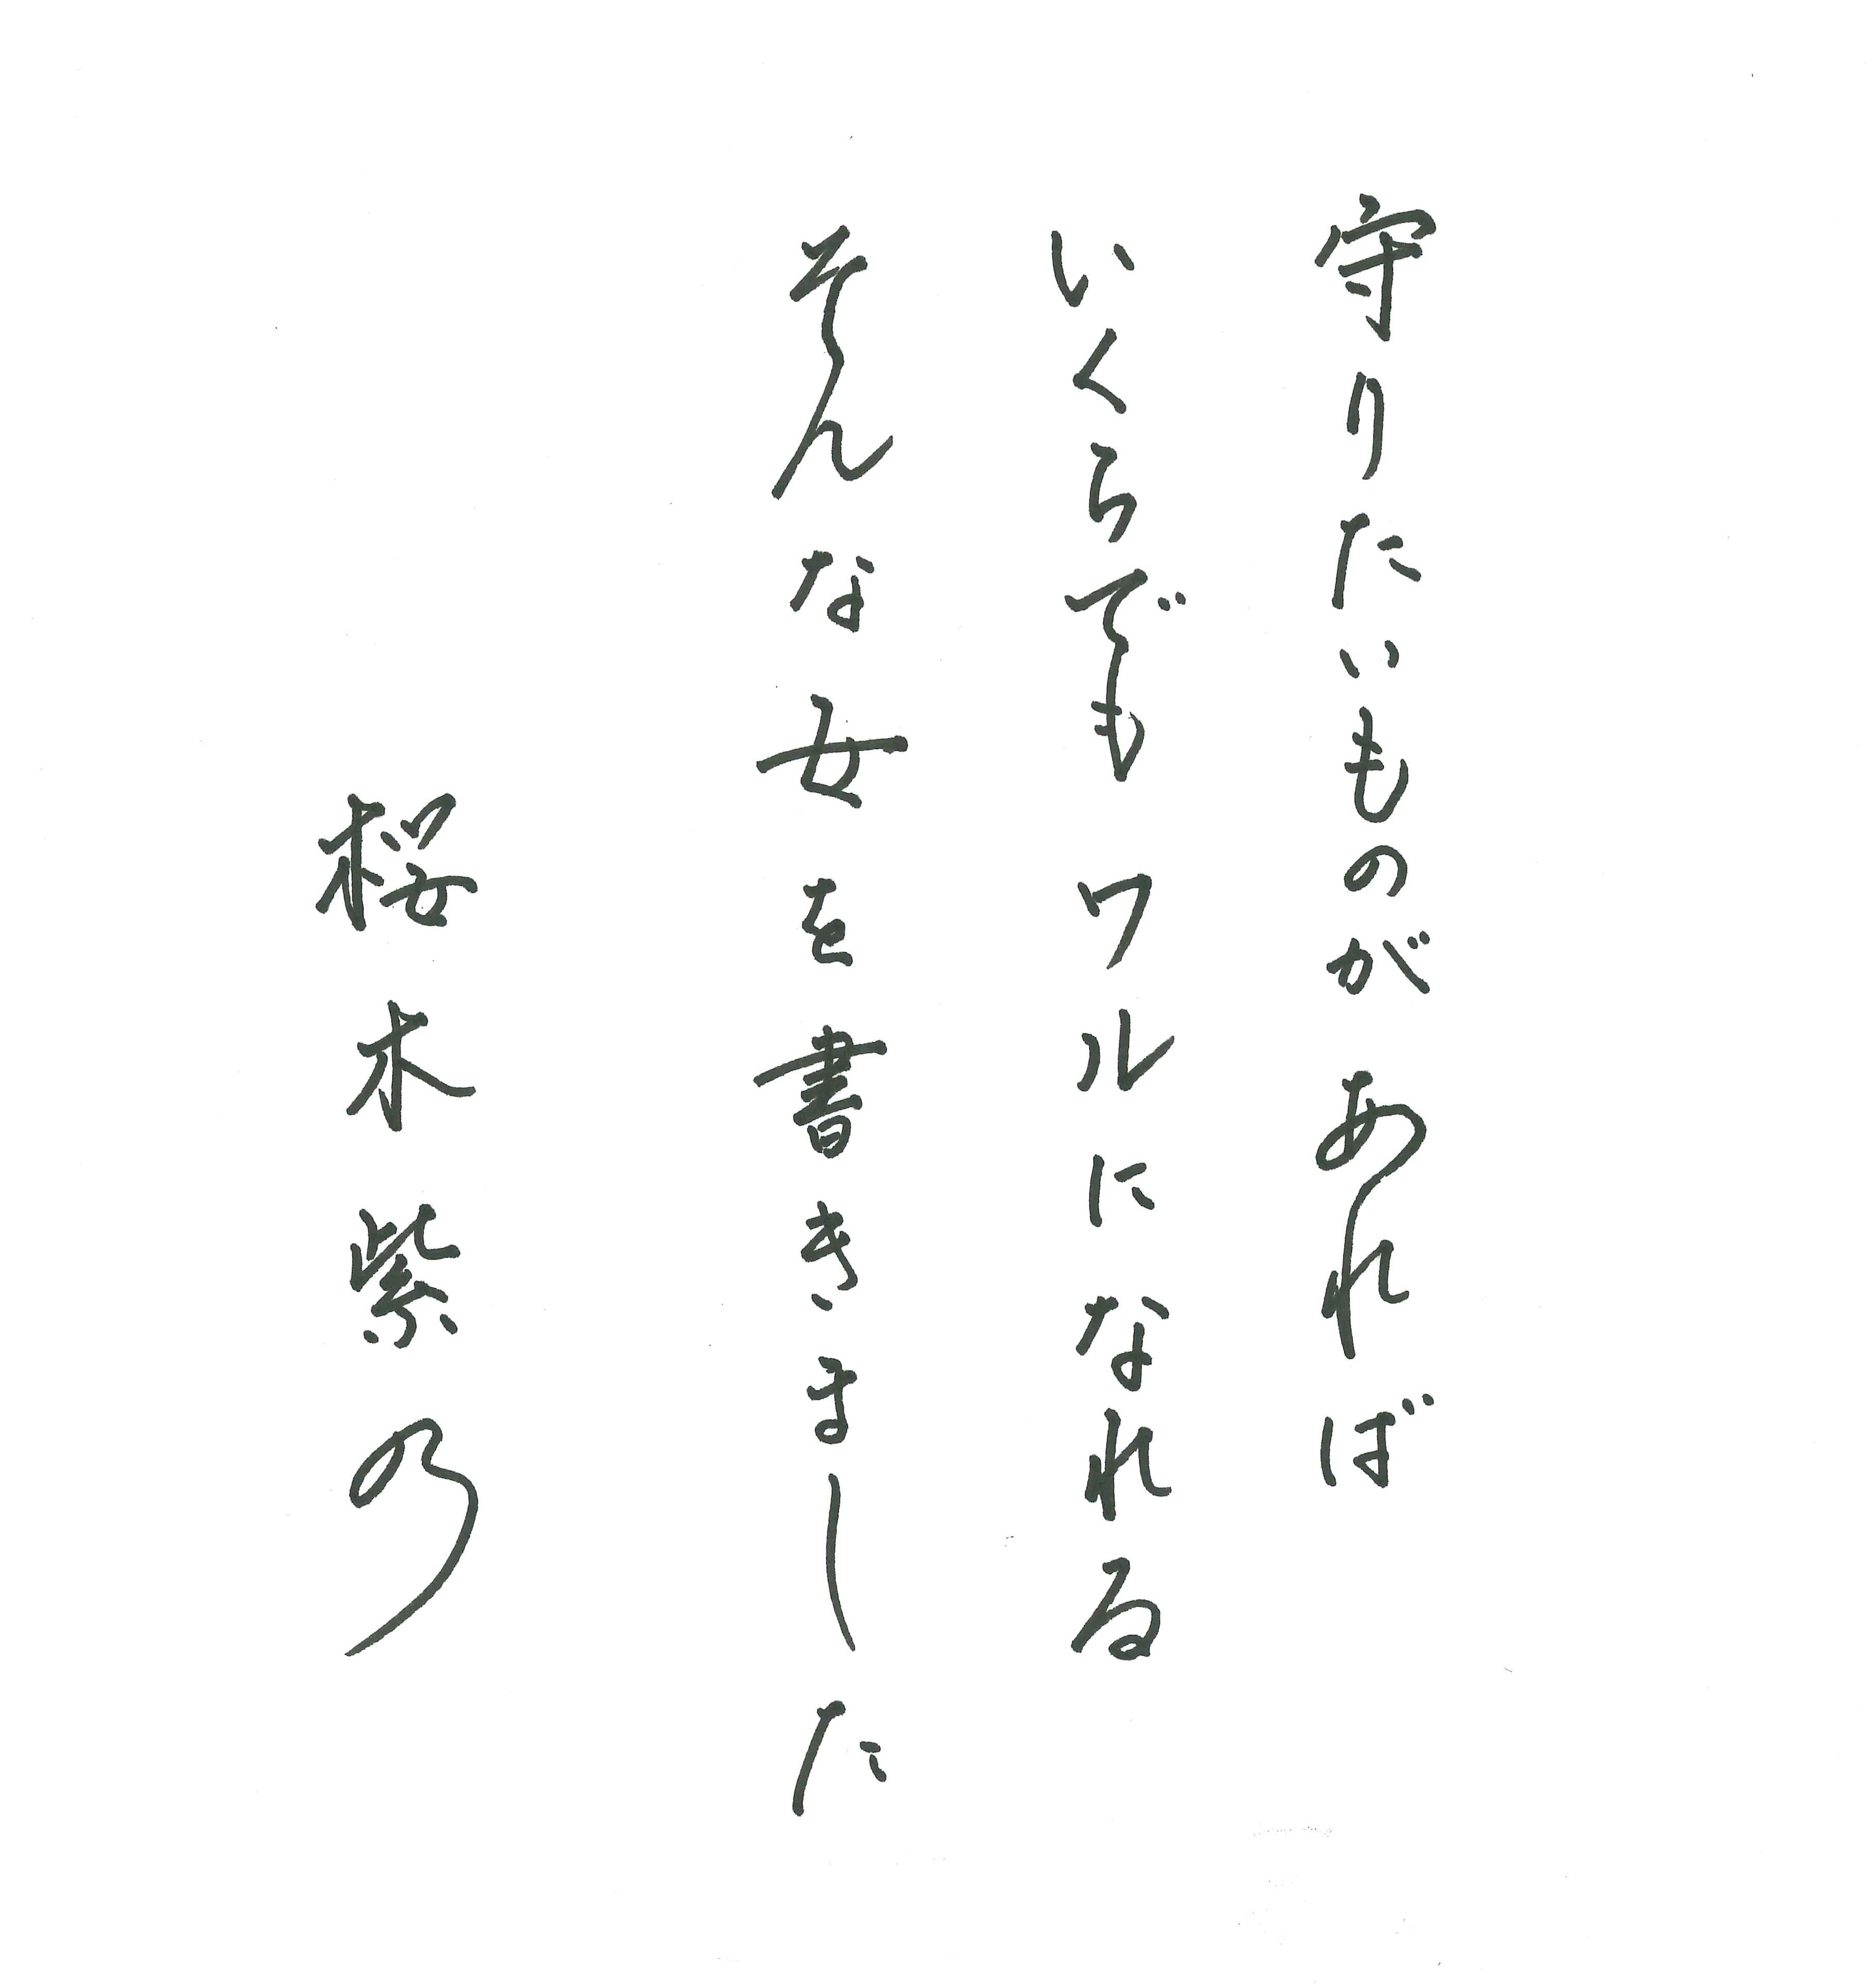 守りたいものが あれば
いくらでも ワルになれる
そんな女を書きました
桜木紫乃